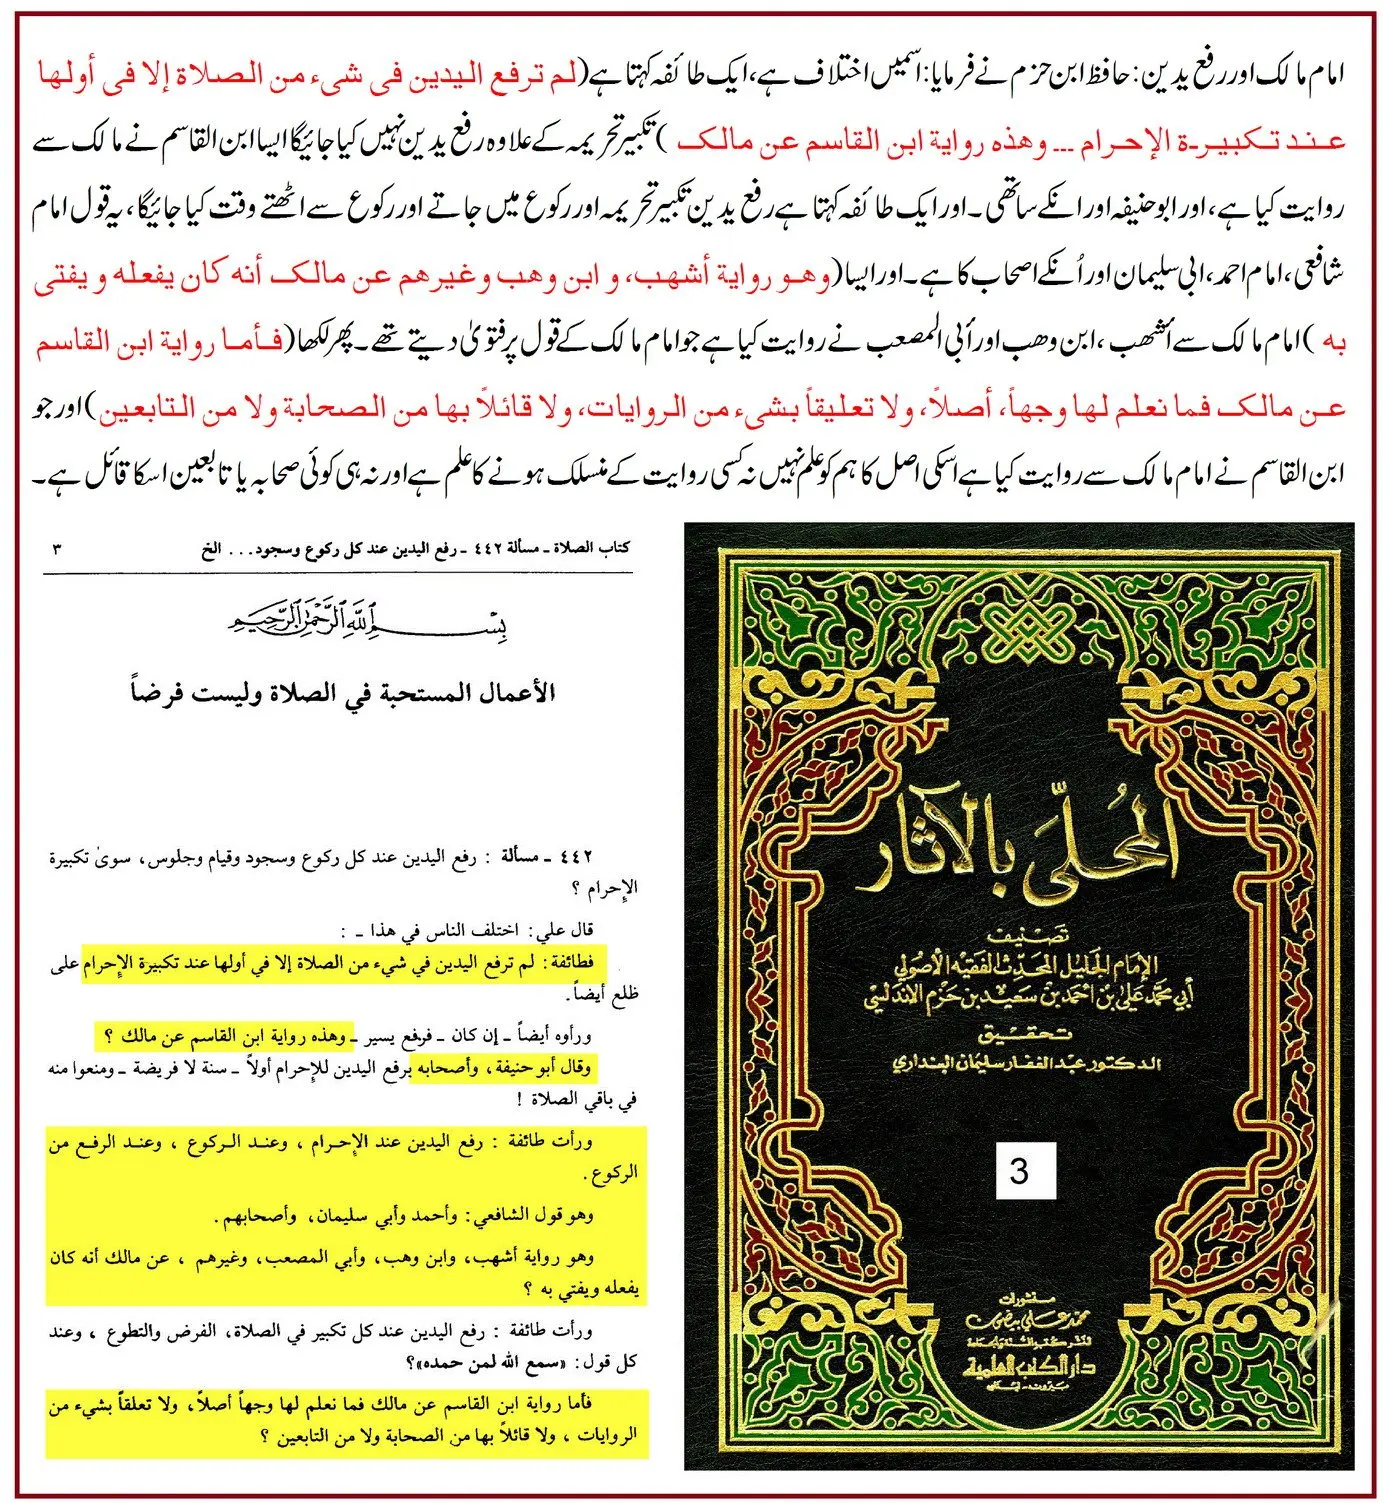 امام مالک اور رفع یدین: حافظ ابن حزم نے فرمایا: اسمیں اختلاف ہے، ایک طائفہ کہتا ہے(لم ترفع الیدین فی شیء من الصلاة إلا فی أولها
عند تکبیرة الإحرام ... وهذه روایة ابن القاسم عن مالک )تکبیر تحریمہ کے علاوہ رفع یدین نہیں کیا جائیگا ایسا ابن القاسم نے مالک سے
روایت کیا ہے، اور ابو حنیفہ اور انکے ساتھی۔ اور ایک طائفہ کہتا ہے رفع یدین تکبیر تحریمہ اور رکوع میں جاتے اور رکوع سے اٹھتے وقت کیا جائیگا، یہ قول امام
شافعی، امام احمد، ابی سلیمان اور اُنکے اصحاب کا ہے۔ اور ایسا(وهو روایة أشهب، و ابن وهب وغیرهم عن مالک أنه کان یفعله و یفتی
به )امام مالک سے أشھب، ابن وھب اور أبی المصعب نے روایت کیا ہے جو امام مالک کے قول پر فتویٰ دیتے تھے۔ پھر لکھا(فأما روایة ابن القاسم
عن مالک فما نعلم لها وجهاً، أصلاً، ولا تعلیقاً بشیء من الروایات، ولا قائلاً بها من الصحابة ولا من التابعین)اور جو
ابن القاسم نے امام مالک سے روایت کیا ہے اسکی اصل کا ہم کو علم نہیں نہ کسی روایت کے منسلک ہونے کا علم ہے اور نہ ہی کوئی صحابہ یا تابعین اسکا قائل ہے۔
كتاب الصلاة ـ مسألة ٤٤٢ ـ رفع اليدين عند كل ركوع وسجود... الخ ٣
بسم الله الرحمن الرحيم
الأعمال المستحبة في الصلاة وليست فرضاً
٤٤٢ ـ مسألة : رفع اليدين عند كل ركوع وسجود وقيام وجلوس، سوى تكبيرة
الإحرام ؟
قال علي: اختلف الناس في هذا ـ :
فطائفة: لم ترفع اليدين في شيء من الصلاة إلا في أولها عند تكبيرة الإحرام على
ظلع أيضاً.
ورأوه أيضاً ـ إن كان ـ فرفع يسير ـ وهذه رواية ابن القاسم عن مالك ؟
وقال أبو حنيفة، وأصحابه برفع اليدين للإحرام أولاً ـ سنة لا فريضة ـ ومنعوا منه
في باقي الصلاة !
ورأت طائفة : رفع اليدين عند الإحرام ، وعند الركوع ، وعند الرفع من
الركوع.
وهو قول الشافعي: وأحمد وأبي سليمان، وأصحابهم.
وهو رواية أشهب، وابن وهب، وأبي المصعب، وغيرهم ، عن مالك أنه كان
يفعله ويفتي به ؟
ورأت طائفة : رفع اليدين عند كل تكبير في الصلاة، الفرض والتطوع ، وعند
كل قول: «سمع الله لمن حمده»؟
فأما رواية ابن القاسم عن مالك فما نعلم لها وجهاً أصلاً، ولا تعلقاً بشيء من
الروايات ، ولا قائلاً بها من الصحابة ولا من التابعين ؟
المحلّى بالآثار
تصنيف
الإمام الجليل المحدث الفقيه الأصولي
أبي محمد علي بن أحمد بن سعيد بن حزم الاندلسي
تحقيق
الدكتور عبد الغفار سليمان البنداري
3
منشورات
محمد علي بيضون
لنشر كتب السنة والجماعة
دار الكتب العلمية
بيروت - لبنان